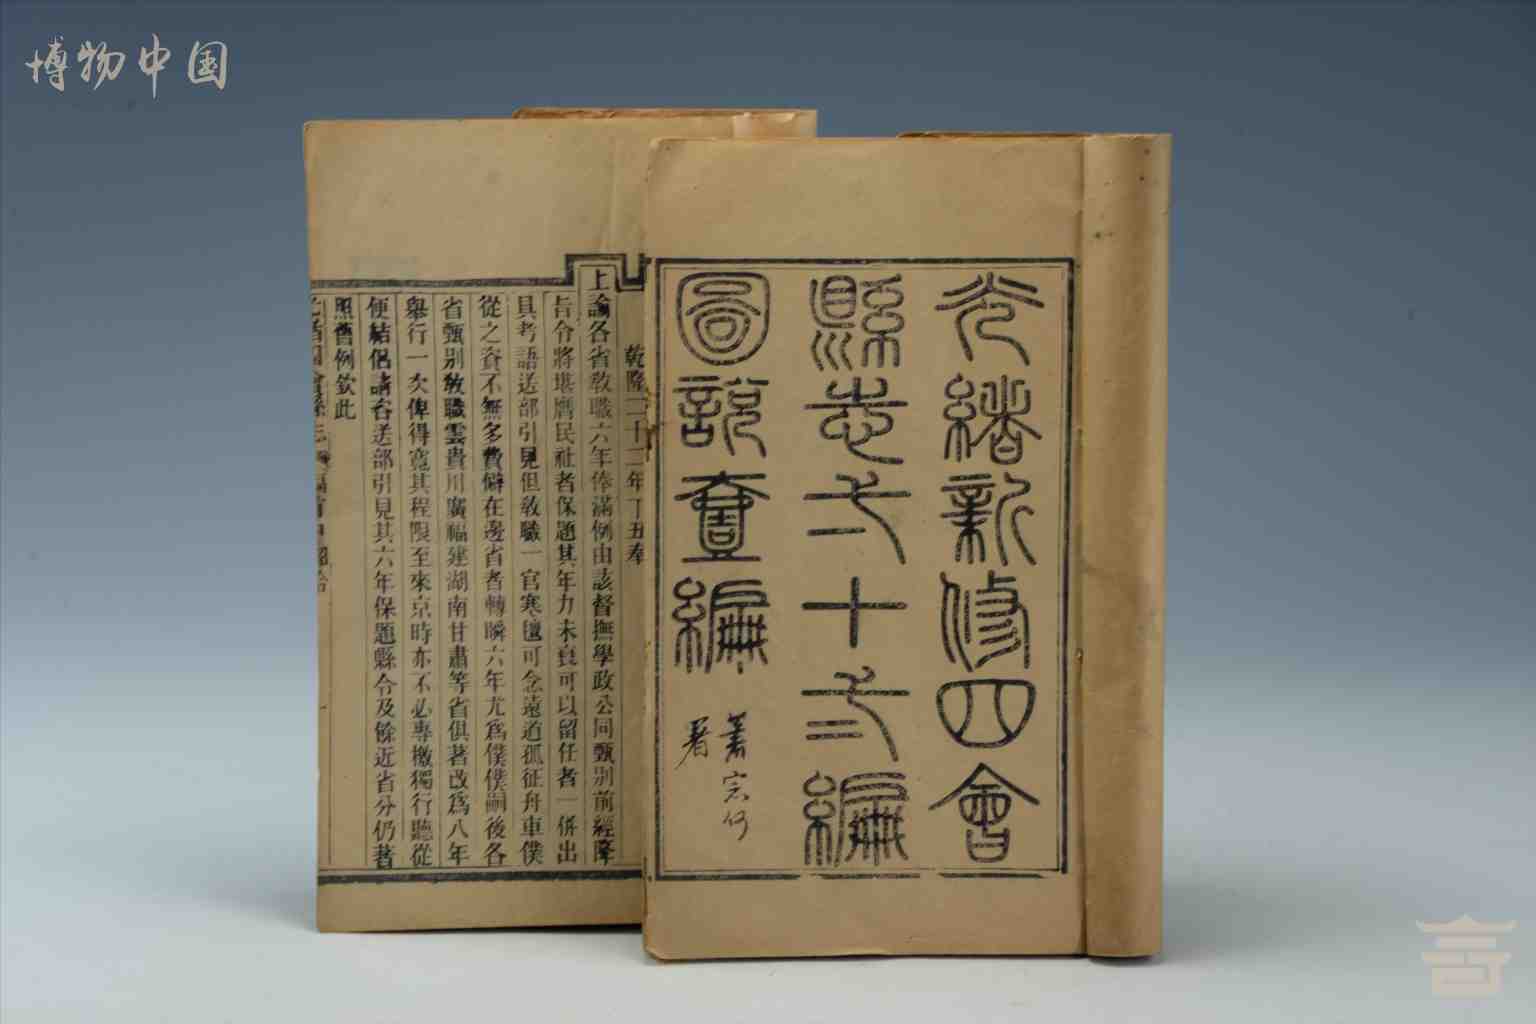 博物中国
光緒新修四會
縣志弍十弍編
圖說壹編
署
乾隆二十二年丁丑奉
上諭各省教職六年俸滿例由該督撫學政公同甄別前經降
旨令將堪膺民社者保題其年力未衰可以留任者一併出
具考語送部引見但教職一官寒氊可念遠道孤征舟車僕
從之資不無多費僻在邊省者轉瞬六年尤爲僕僕嗣後各
省甄別教職雲貴川廣福建湖南甘肅等省俱著改爲八年
舉行一次俾得寬其程限至來京時亦不必專檄獨行聽從
便結侶請咨送部引見其六年保題縣令及餘近省分仍著
照舊例欽此